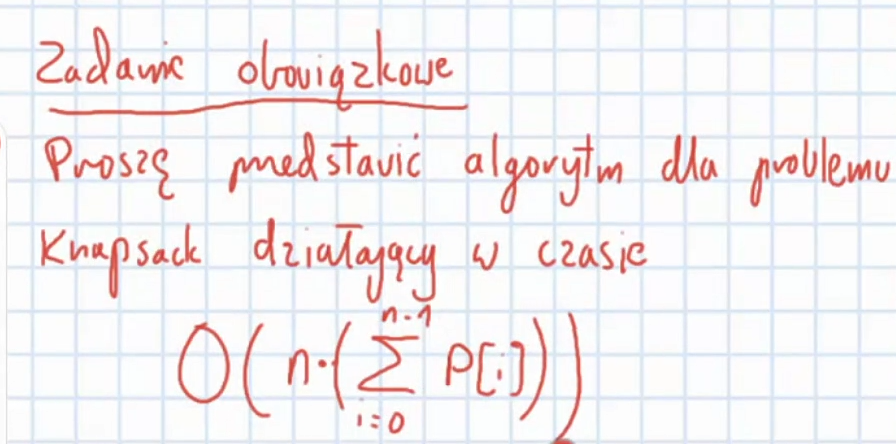 Zadanie obowiązkowe
Proszę przedstawić algorytm dla problemu
Knapsack działający w czasie
O(n·(∑_{i=0}^{n-1} P[i]))